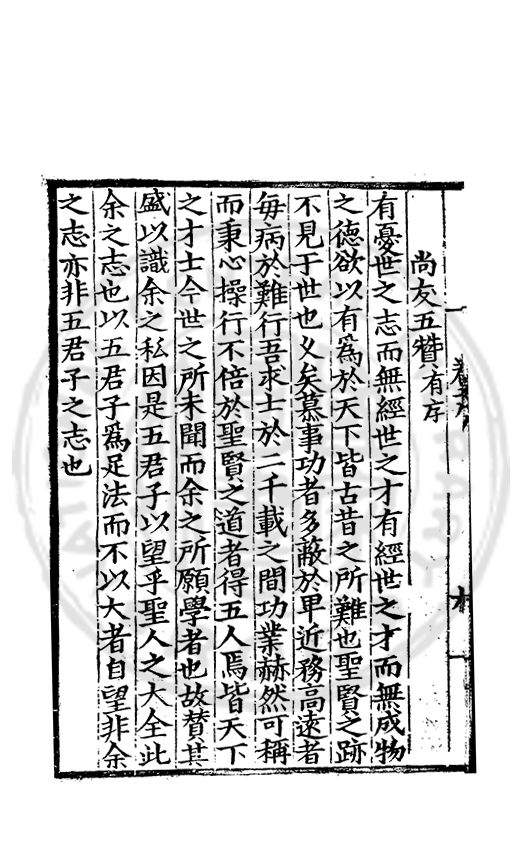 尚友五贊有序
有憂世之志而無經世之才有經世之才而無成物
之德欲以有爲於天下皆古昔之所難也聖賢之跡
不見于世也乆矣慕事功者多蔽於卑近務高遠者
每病於難行吾求士於二千載之間功業赫然可稱
而秉心操行不倍於聖賢之道者得五人焉皆天下
之才士今世之所未聞而余之所願學者也故贊其
盛以識余之私因是五君子以望乎聖人之大全此
余之志也以五君子爲足法而不以大者自望非余
之志亦非五君子之志也